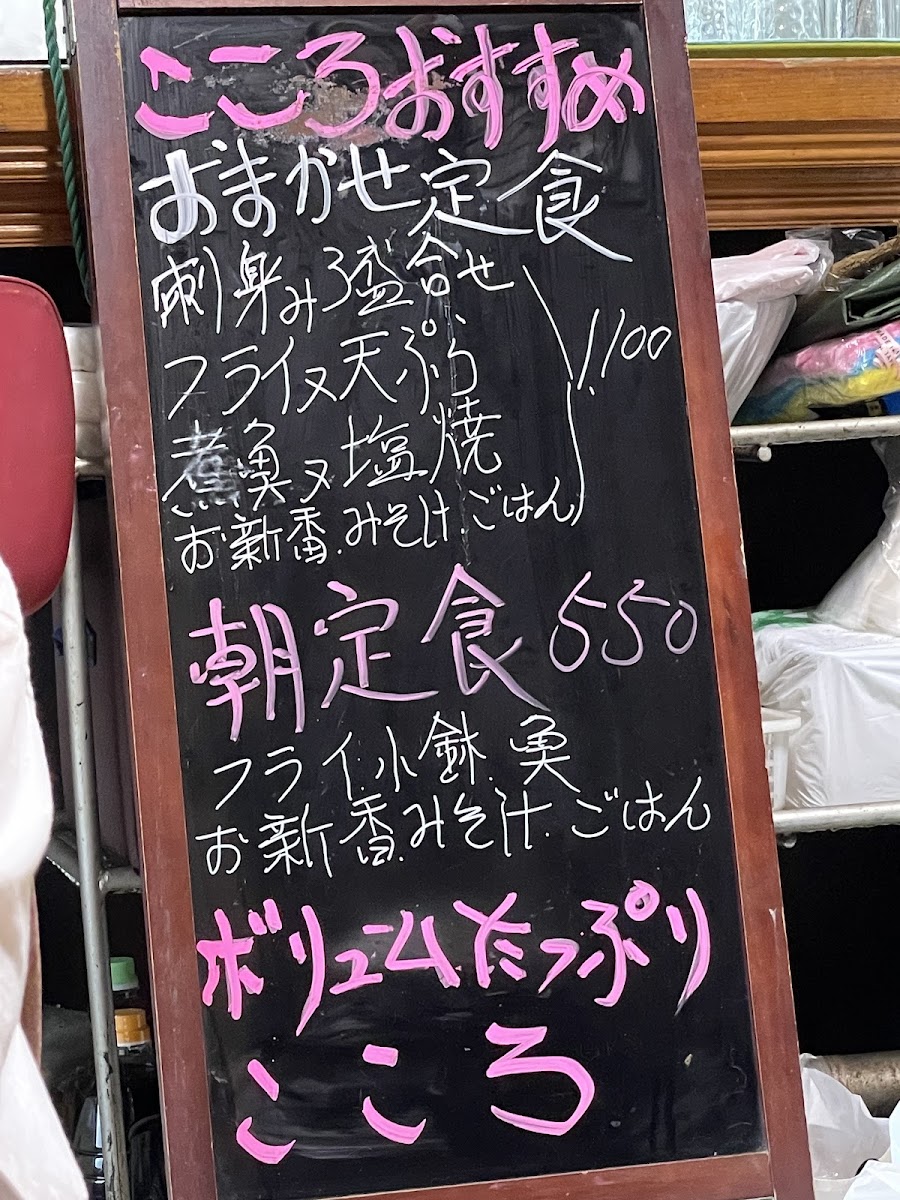 こころおすすめ
おまかせ定食
刺身み3盛合せ
フライ又天ぷら
煮魚又塩焼
お新香.みそ汁.ごはん
1,100
朝定食550
フライ.小鉢.魚
お新香.みそ汁.ごはん
ボリュームたっぷり
こころ